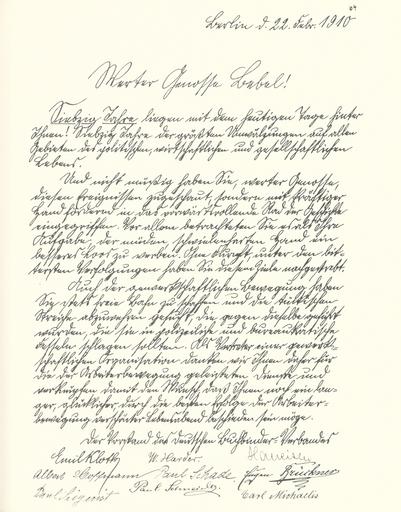 Berlin d. 22. Febr. 1910
Werter Genosse Bebel!
Siebzig Jahre liegen mit dem heutigen Tage hinter
Ihnen! Siebzig Jahre der größten Umwälzungen auf allen
Gebieten des politischen, wirtschaftlichen und gesellschaftlichen
Lebens.
Und nicht müßig haben Sie, werter Genosse,
diesen Ereignissen zugeschaut, sondern mit kräftiger
Hand fördernd in das vorwärtsrollende Rad der Geschichte
eingegriffen. Vor allem betrachteten Sie es als Ihre
Aufgabe, der müden, schwielenharten Hand ein
besseres Loos zu werben. Ohne Furcht, unter den bit-
tersten Verfolgungen haben Sie diesem Ziele nachgestrebt.
Auch der gewerkschaftlichen Bewegung haben
Sie stets freie Bahn zu schaffen und die tückischen
Streiche abzuwehren gesucht, die gegen dieselbe geführt
wurden, die sie in polizeiliche und bureaukratische
Fesseln schlagen sollten. Als Vertreter einer gewerk-
schaftlichen Organisation danken wir Ihnen daher für
die der Arbeiterbewegung geleisteten Dienste und
verknüpfen damit den Wunsch, daß Ihnen noch ein lan-
ger, glücklicher, durch die besten Erfolge der Arbeiter-
bewegung verschönter Lebensabend beschieden sein möge.
Der Vorstand des Deutschen Buchbinder-Verbandes
Emil Kloth W. Harder.
Albert Paul Schade Eugen Brückner
Paul Schneider. Carl Michaelis